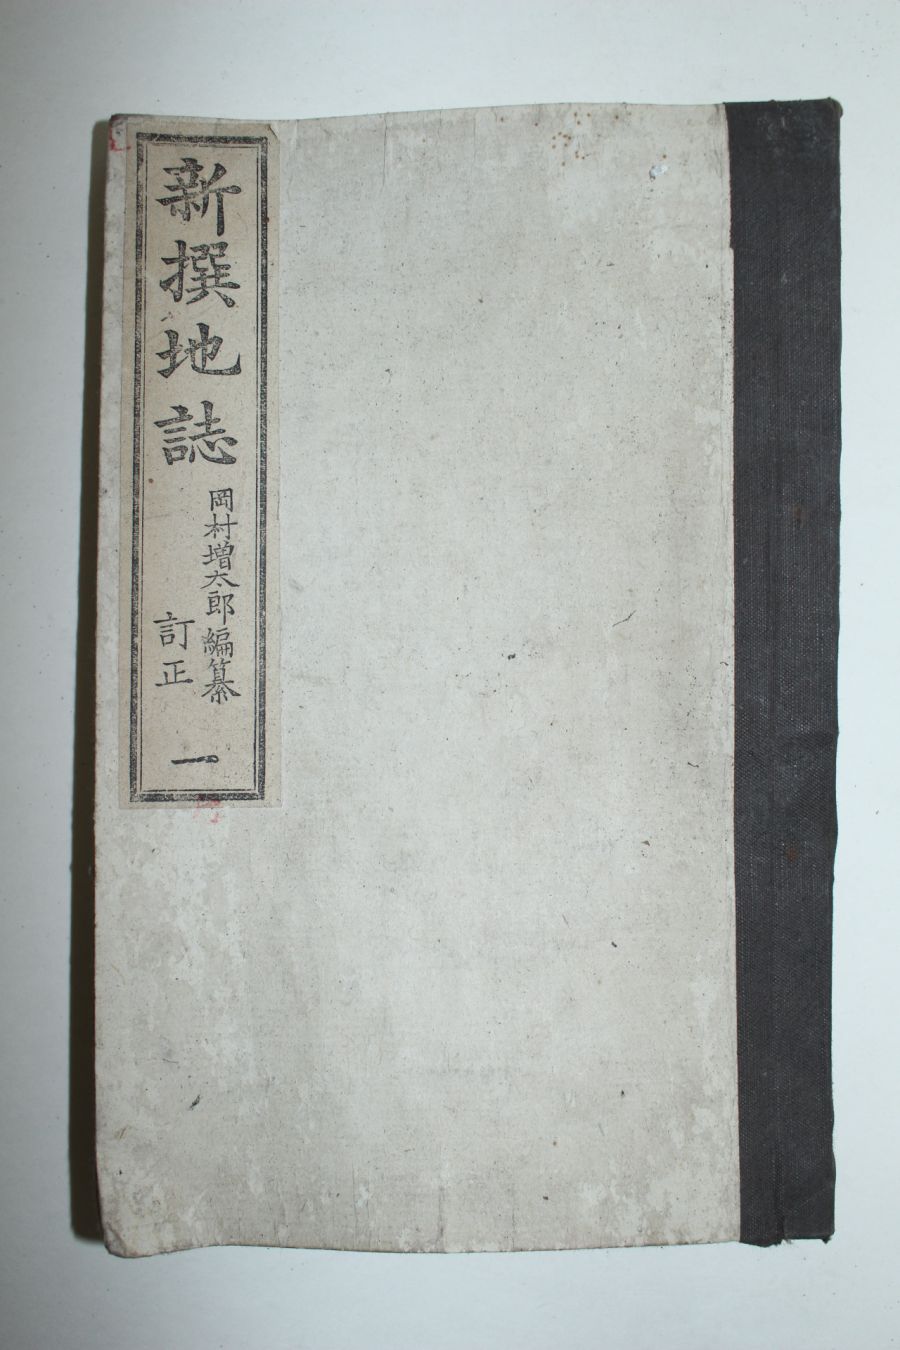 新撰地誌
岡村增太郎編纂
訂正
一